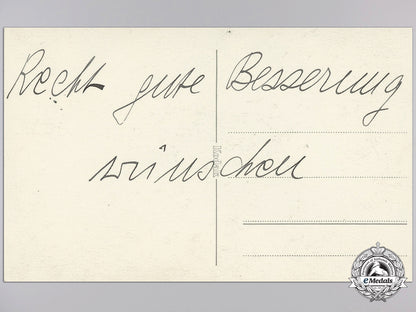 Recht gute Besserung
wünschen
eMedals